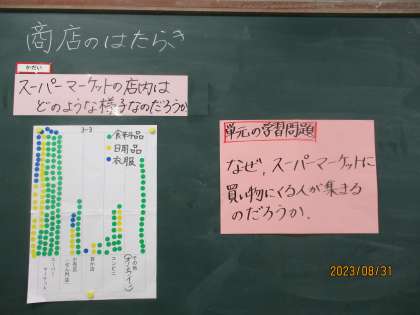 商店のはたらき
かだい
スーパーマーケットの店内は
どのような様子なのだろうか
3-3
食料品
日用品
衣服
スーパー
マーケット
コンビニ
その他
単元の学習問題
なぜ、スーパーマーケットに
買い物にくる人が集まる
のだろうか。
2023/08/31